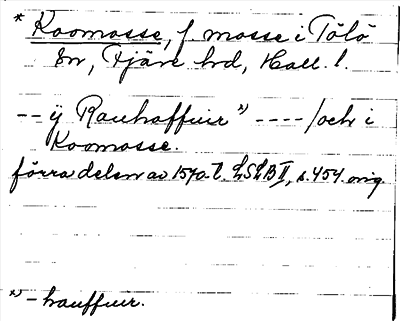 * Koomosse, f. mosse i Tölö
sn, Fjäre hd, Hall. l.
-- ÿ Rauhaffuir *) ---- / och i
Koomosse.
förra delen av 1570-t. LSLB II, s. 454 orig.
*) - hauffuir.